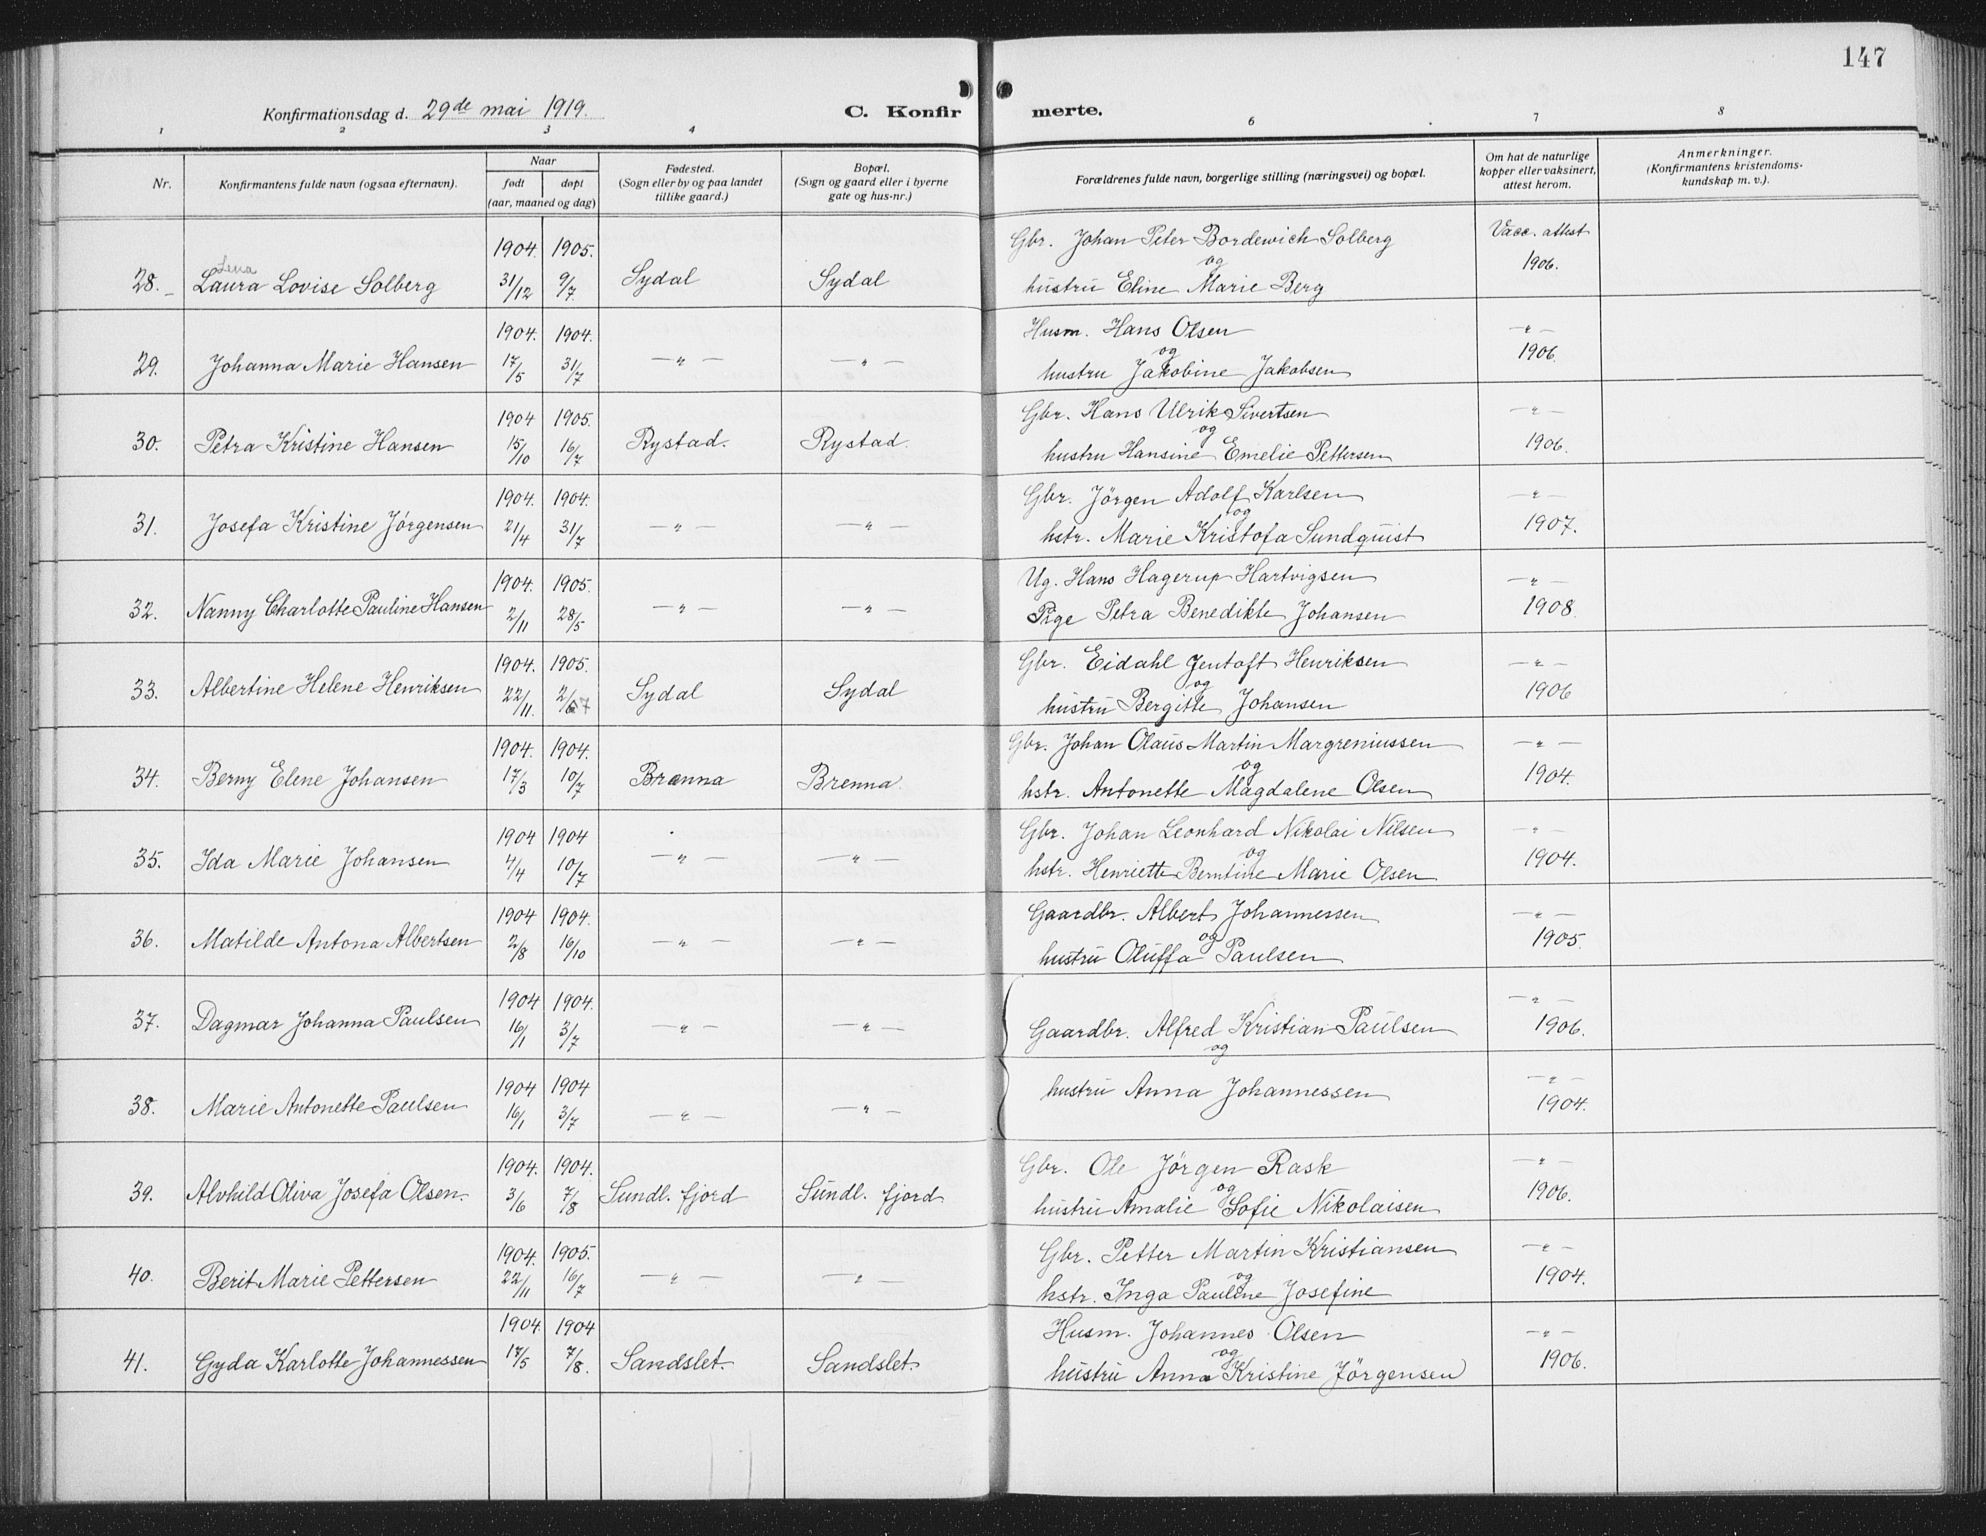 147
Konfirmationsdag d. 29de mai 1919.
C. Konfirmerte.
1 2 3 4 6 7 8
Nr.
Konfirmantens fulde navn (ogsaa efternavn).
Naar
født døpt
(aar, maaned og dag)
Fødested.
(Sogn eller by og paa landet
tillike gaard.)
Bopæl.
(Sogn og gaard eller i byerne
gate og hus-nr.)
Forældrenes fulde navn, borgerlige stilling (næringsvei) og bopæl.
Om hat de naturlige
kopper eller vaksinert,
attest herom.
Anmerkninger.
(Konfirmantens kristendoms-
kundskap m. v.).
1904. 1905. Gbr. Johan Peter Bordewich Solberg Vacc. attest
Lena og 1906.
28. Laura Lovise Solberg 31/12 9/7 Sydal Sydal hustru Eline Marie Berg
1904. 1904. Husm. Hans Olsen —"—
og 1906.
29. Johanna Marie Hansen 17/5 31/7 —"— —"— hustru Jakobine Jakobsen
1904 1905. Gbr. Hans Ulrik Sivertsen —"—
og 1906.
30. Petra Kristine Hansen 15/10 16/7 Rystad. Rystad. hustru Hansine Emelie Pettersen
1904. 1904. Gbr. Jörgen Adolf Karlsen —"—
og 1907.
31. Josefa Kristine Jørgensen 21/4 31/7 —"— —"— hstr. Marie Kristofa Sundquist
1904. 1905. Ug. Hans Hagerup Hartvigsen —"—
1908.
32. Nanny Charlotte Pauline Hansen 2/11 28/5 —"— —"— Pige Petra Benedikte Johansen
1904. 1905. Gbr. Eidahl Jentoft Henriksen —"—
og 1906
33. Albertine Helene Henriksen 22/11. 2/67 Sydal Sydal hustru Bergitte Johansen
1904. 1904. Gbr. Johan Olaus Martin Margreniussen —"—
og 1904.
34. Berny Elene Johansen 17/3 10/7 Brenna Brenna. hstr. Antonette Magdalene Olsen
1904 1904 Gbr. Johan Leonhard Nikolai Nilsen —"—
og 1904.
35. Ida Marie Johansen 4/4 10/7 —"— —"— hstr. Henriette Berntine Marie Olsen
1904 1904. Gaardbr. Albert Johannessen —"—
og 1905.
36. Matilde Antona Albertsen 2/8 16/10 —"— —"— hustru Oluffa Paulsen
1904 1904. —"—
37. Dagmar Johanna Paulsen 16/1 3/7 —"— —"— Gaardbr. Alfred Kristian Paulsen 1906.
og
1904 1904 hustru Anna Johannessen —"—
38. Marie Antonette Paulsen 16/1 3/7 —"— —"— 1904.
1904. 1904. Gbr. Ole Jörgen Rask —"—
og 1906.
39. Alvhild Oliva Josefa Olsen. 3/6 7/8 Sundl. fjord Sundl. fjord hustru Amalie Sofie Nikolaisen
1904. 1905. Gbr. Petter Martin Kristiansen —"—
og 1904.
40. Berit Marie Pettersen 22/11 16/7 —"— —"— hstr. Inga Pauline Josefine
1904. 1904 Husm. Johannes Olsen —"—
og 1906.
41. Gyda Karlotte Johannessen 17/5 7/8. Sandslet. Sandslet. hustru Anna Kristine Jörgensen